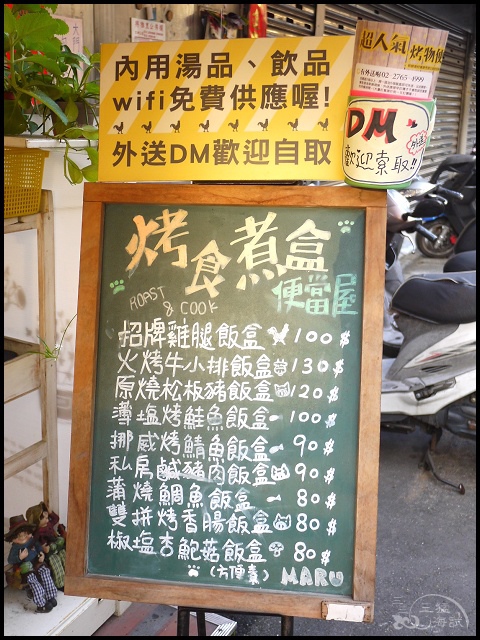 內用湯品、飲品
wifi免費供應喔!
外送DM歡迎自取
超人氣烤物便
02-2765-4999
DM
歡迎索取!!
烤食煮盒
便當屋
ROAST
& COOK
招牌雞腿飯盒 100$
火烤牛小排飯盒 130$
原燒松板豬飯盒 120$
薄塩烤鮭魚飯盒 100$
挪威烤鯖魚飯盒 90$
私房鹹豬肉飯盒 90$
蒲燒鯛魚飯盒 80$
雙拼烤香腸飯盒 80$
椒塩杏鮑菇飯盒 80$
(方便素) MARU